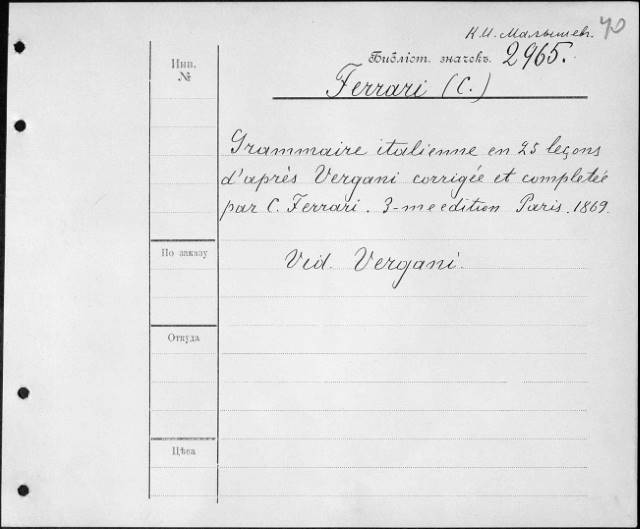 К.И. Малышев. 40
Библіот. значекъ. 2965.
Инв.
№
Ferrari (C.)
Grammaire italienne en 25 leçons
d'après Vergani corrigée et completée
par C. Ferrari. 3-me edition Paris. 1869.
По заказу
Vid. Vergani.
Откуда
Цѣна